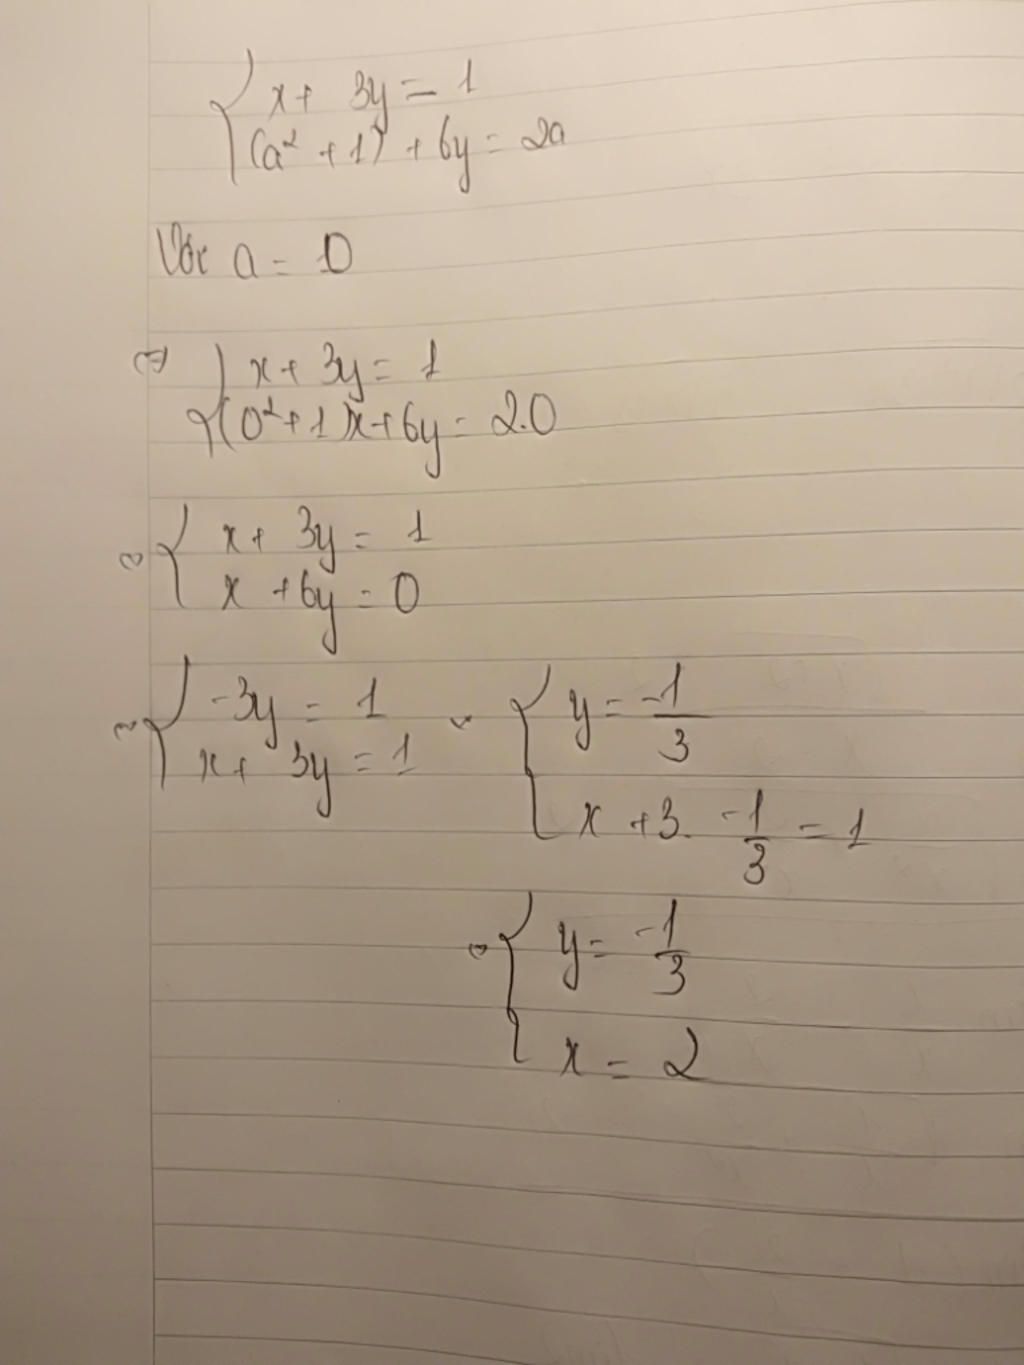 { x + 3y = 1
(a² + 1) + 6y = 2a
Với a = 0
⇔ { x + 3y = 1
(0² + 1)x + 6y = 2.0
⇔ { x + 3y = 1
x + 6y = 0
⇔ { -3y = 1
x + 3y = 1
⇔ { y = -1/3
x + 3. -1/3 = 1
⇔ { y = -1/3
x = 2